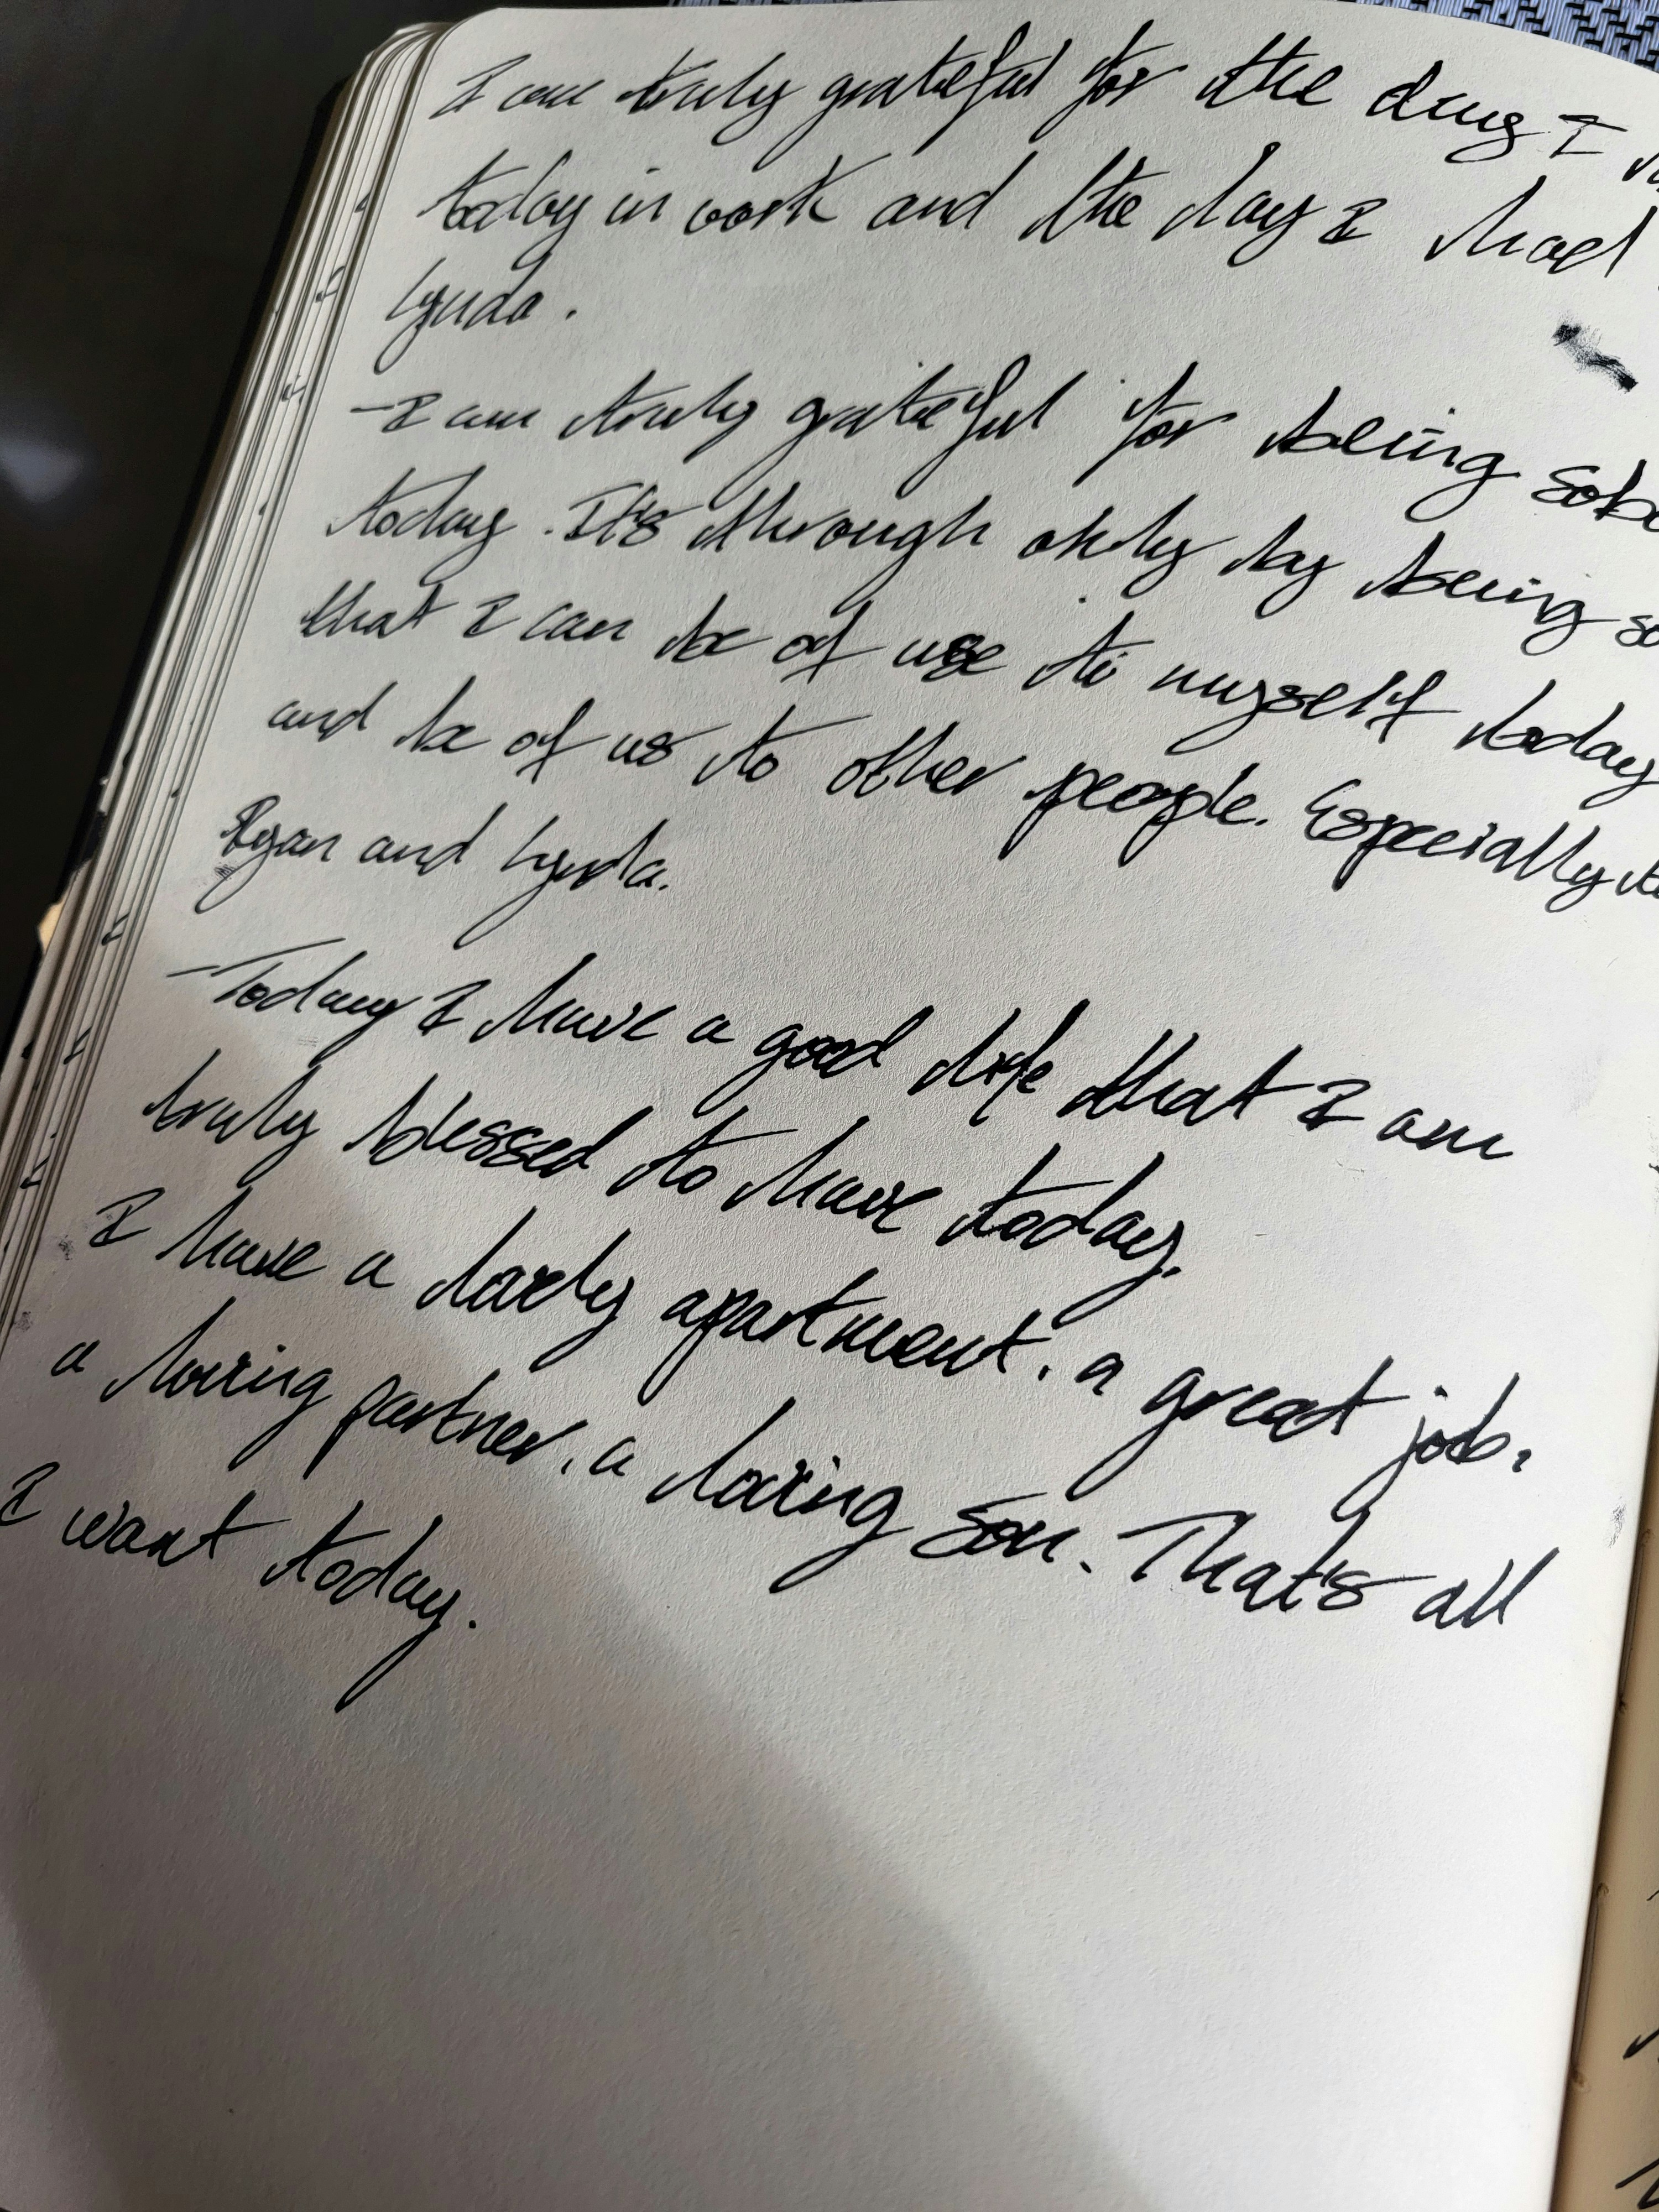 I am truly grateful for the day I
today in work and the day I had
Lynda.
-I am truly grateful for being
today. It's through only by being
that I can be of use to myself today
and be of us to other people. Especially
Ryan and Lynda.
-Today I have a good life that I am
truly blessed to have today.
I have a lovely apartment, a great job,
a loving partner, a loving son. That's all
I want today.